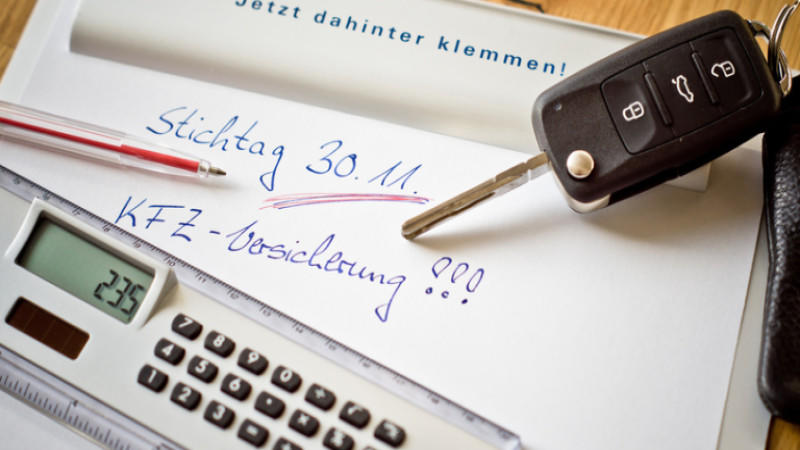 Jetzt dahinter klemmen!
Stichtag 30.11.
KFZ-Versicherung!!!
235
7 8 9 0 ÷ √
4 5 6 • ×
1 2 3 =